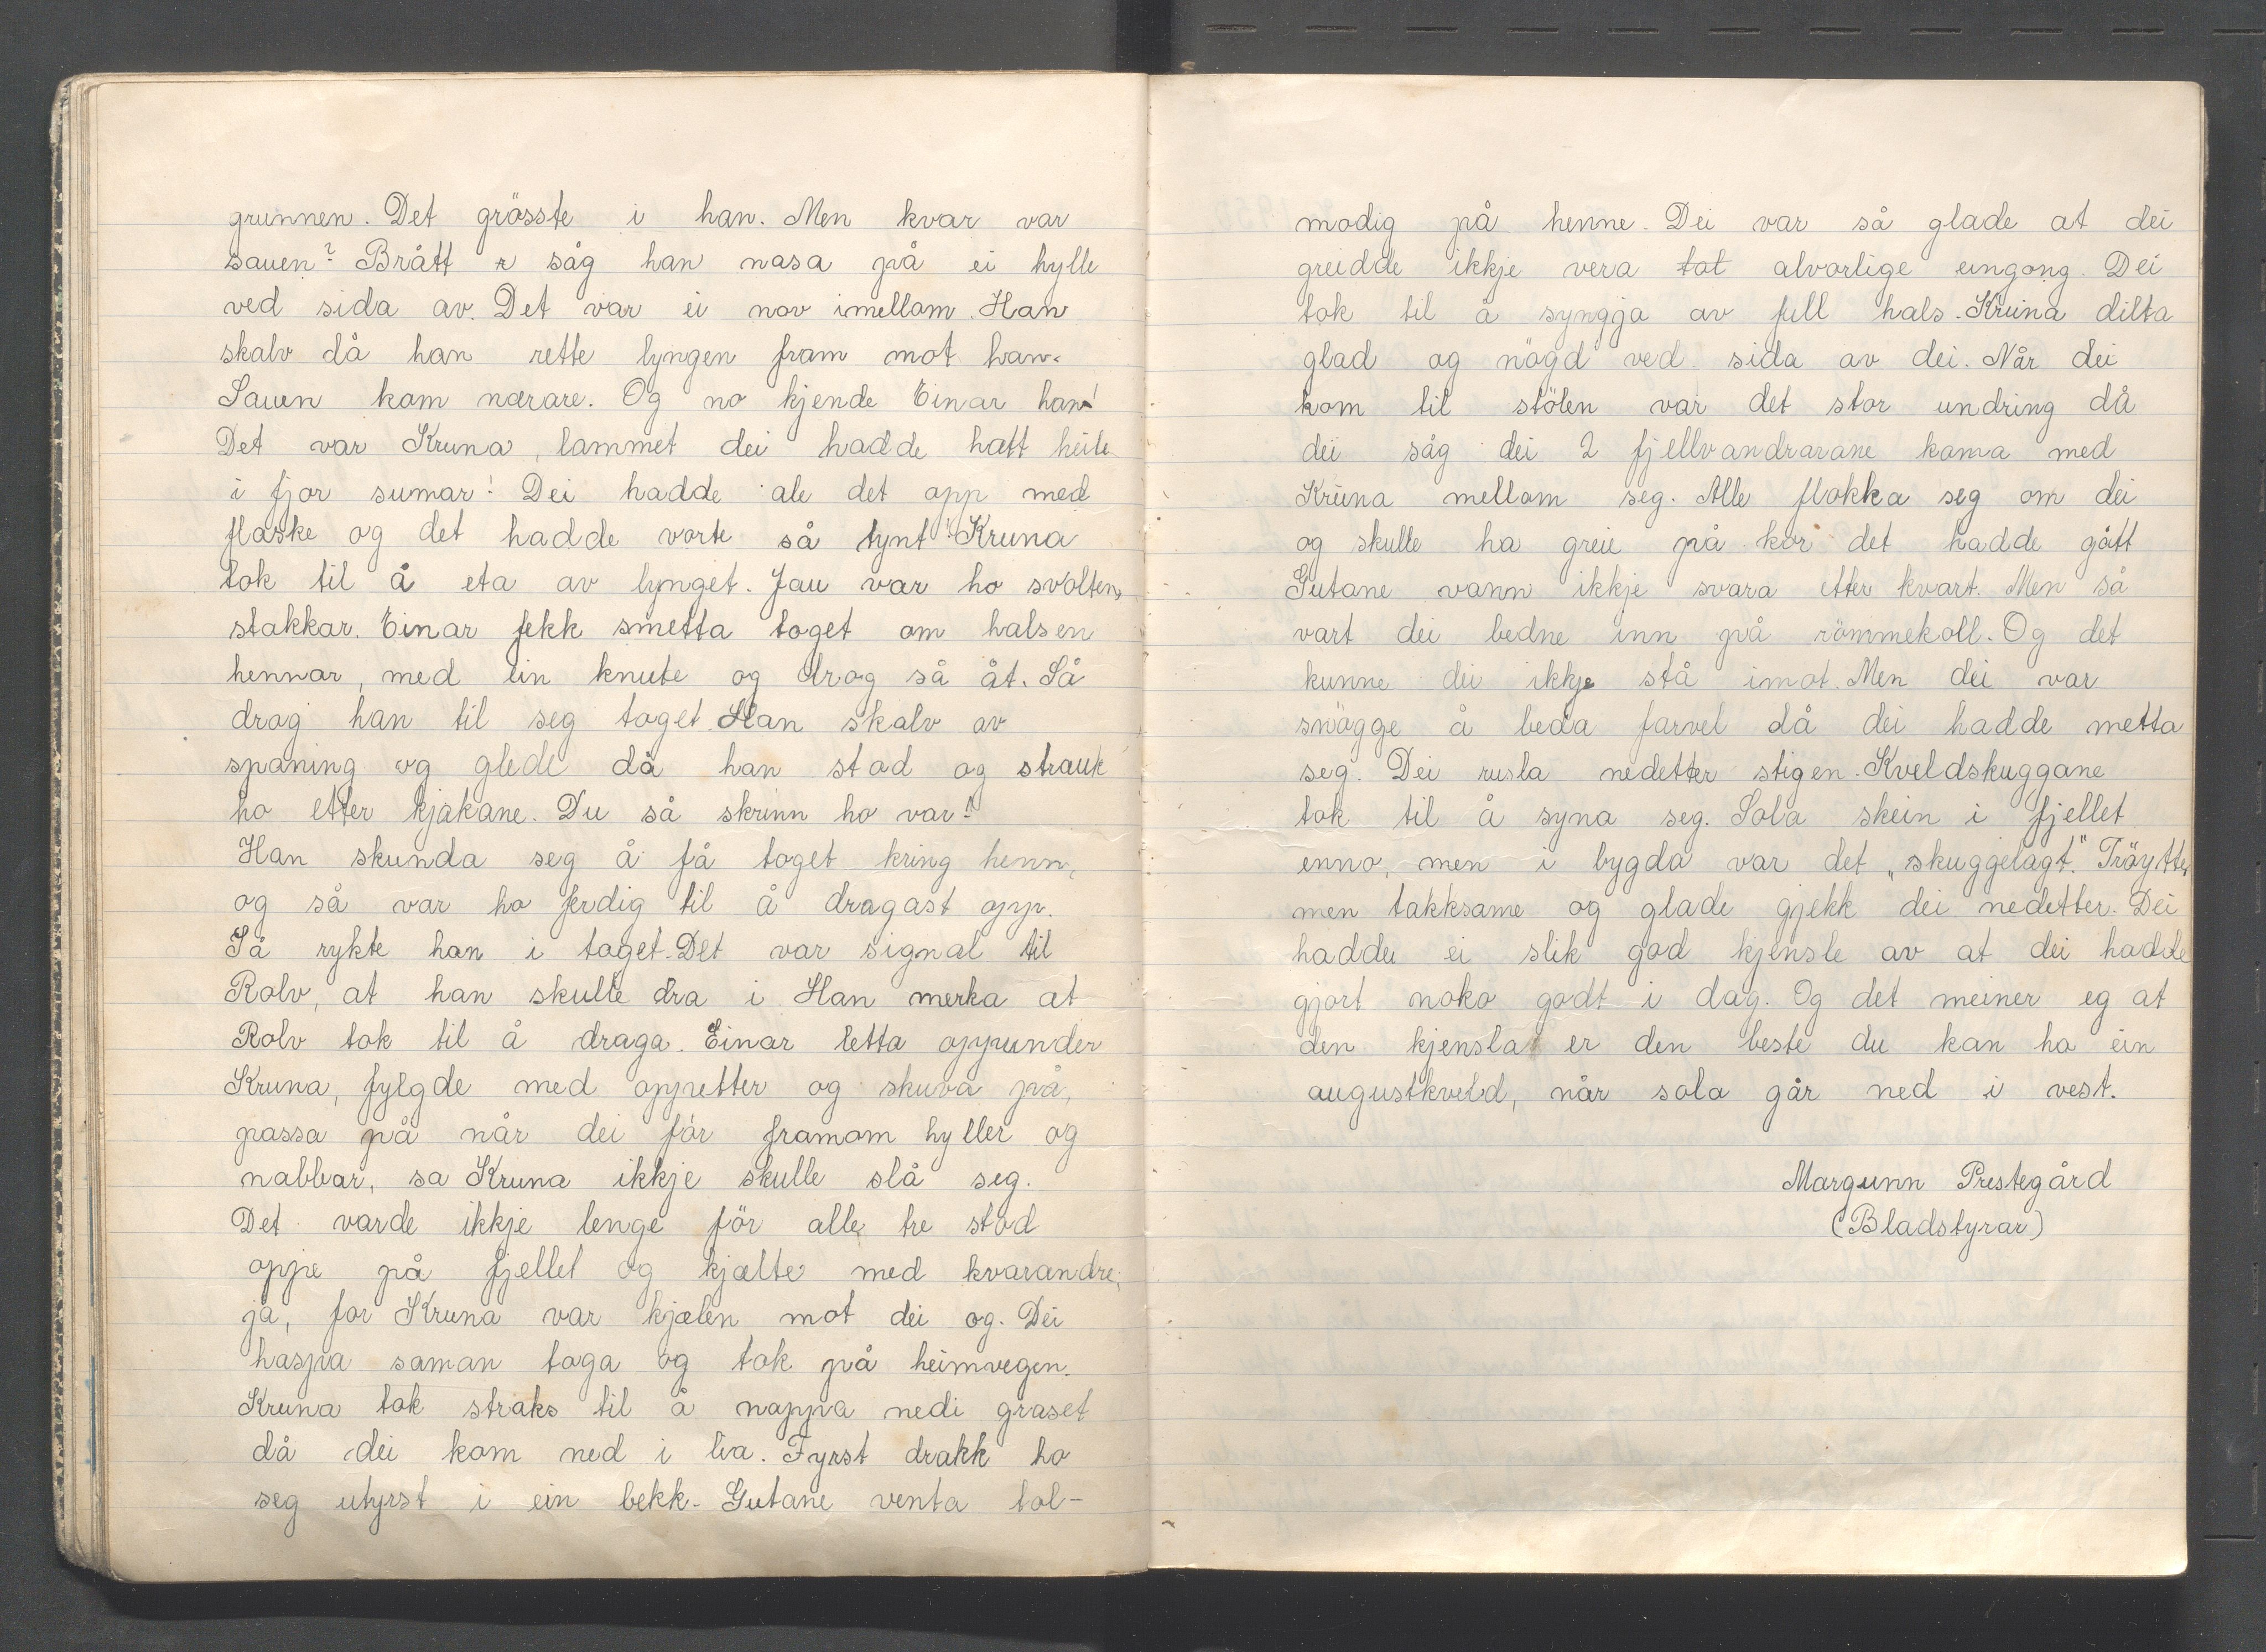 grunnen. Det grösste i han. Men kvar var
sauen? Brått r såg han nasa på ei hylle
ved sida av. Det var ei nov imellom. Han
skalv då han rette lyngen fram mot han.
Sauen kom nærare. Og no kjende Einar han!
Det var Kruna, lammet dei hadde hatt heite
i fjor sumar! Dei hadde ale det opp med
flaske og det hadde vorte så tynt! Kruna
tok til å eta av lynget. Jau var ho svolten,
stakkar. Einar fekk smetta toget om halsen
hennar, med ein knute og drog så åt. Så
drog han til seg toget. Han skalv av
spaning og glede då han stod og strauk
ho etter kjakane. Du så skrinn ho var!
Han skunda seg å få toget kring henn,
og så var ho ferdig til å dragast opp.
Så rykte han i toget. Det var signal til
Rolv, at han skulle dra i. Han merka at
Rolv tok til å draga. Einar letta oppunder
Kruna, fylgde med oppetter og skuva på,
passa på når dei fór framom hyller og
nabbar, sa Kruna ikkje skulle slå seg.
Det varde ikkje lenge för alle tre stod
oppe på fjellet og kjælte med kvarandre,
ja, for Kruna var kjælen mot dei og. Dei
haspa saman toga og tok på heimvegen.
Kruna tok straks til å nappa nedi graset
då dei kom ned i lia. Fyrst drakk ho
seg utyrst i ein bekk. Gutane venta tol-
modig på henne. Dei var så glade at dei
greidde ikkje vera tot alvorlige eingong. Dei
tok til å syngja av full hals. Kruna dilta
glad og nögd ved sida av dei. Når dei
kom til stölen var det stor undring då
dei såg dei 2 fjellvandrarane koma med
Kruna mellom seg. Alle flokka seg om dei
og skulle ha greie på kor det hadde gått
Gutane vann ikkje svara etter kvart. Men så
vart dei bedne inn på römmekoll. Og det
kunne dei ikkje stå imot. Men dei var
snögge å beda farvel då dei hadde metta
seg. Dei rusla nedetter stigen. Kveldskuggane
tok til å syna seg. Sola skein i fjellet
enno, men i bygda var det „skuggelagt." Tröytte,
men takksame og glade gjekk dei nedetter. Dei
hadde ei slik god kjensle av at dei hadde
gjort noko godt i dag. Og det meiner eg at
den kjensla er den beste du kan ha ein
augustkveld, når sola går ned i vest.
Margunn Prestegård
(Bladstyrar)